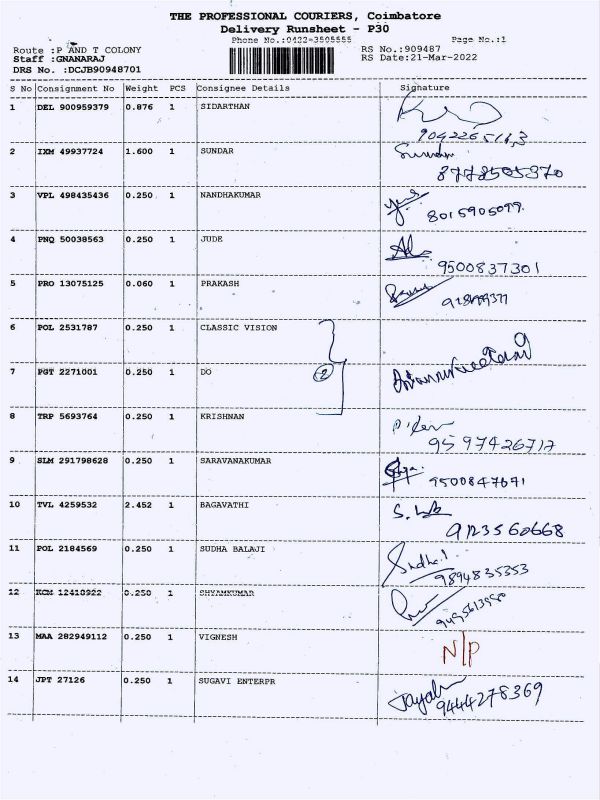 THE PROFESSIONAL COURIERS, Coimbatore
Delivery Runsheet - P30
Phone No.:0422-3505555 Page No.:1
Route :P AND T COLONY RS No.:909487
Staff :GNANARAJ RS Date:21-Mar-2022
DRS No. :DCJB90948701
S No Consignment No Weight PCS Consignee Details Signature
1 DEL 900959379 0.876 1 SIDARTHAN
2 IXM 49937724 1.600 1 SUNDAR
8778505370
3 VPL 498435436 0.250 1 NANDHAKUMAR
8015905099.
4 PNQ 50038563 0.250 1 JUDE
9500837301
5 PRO 13075125 0.060 1 PRAKASH
6 POL 2531787 0.250 1 CLASSIC VISION
7 PGT 2271001 0.250 1 DO 2
8 TRP 5693764 0.250 1 KRISHNAN
9597426717
9 SLM 291798628 0.250 1 SARAVANAKUMAR
9500847671
10 TVL 4259532 2.452 1 BAGAVATHI
9123560668
11 POL 2184569 0.250 1 SUDHA BALAJI
Sudha.
9894835353
12 KCM 12410922 0.250 1 SHYAMKUMAR
13 MAA 282949112 0.250 1 VIGNESH N/P
14 JPT 27126 0.250 1 SUGAVI ENTERPR
9444278369